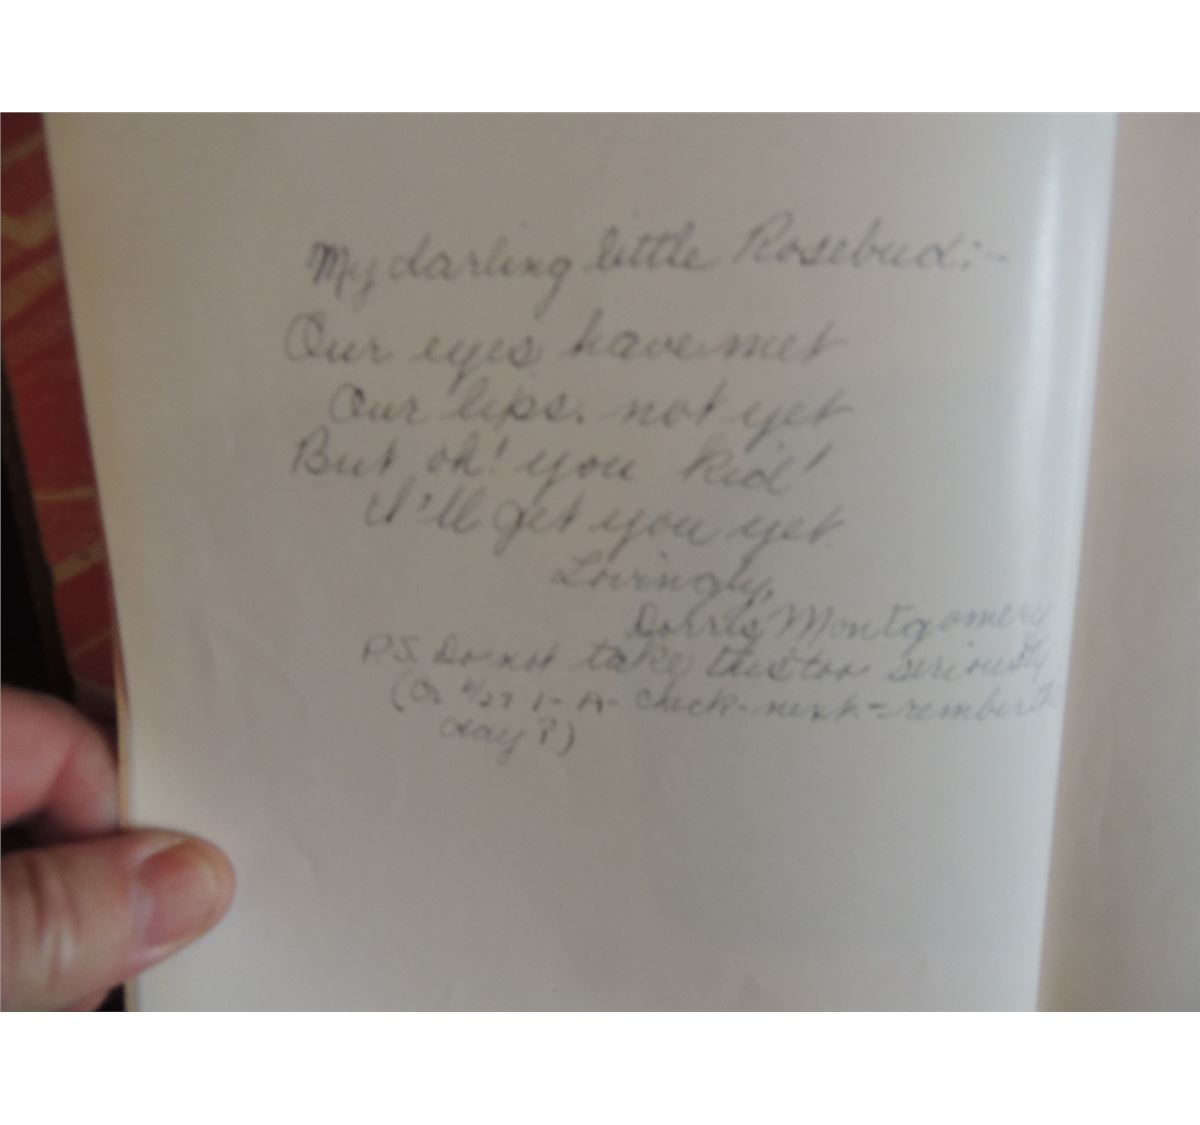 My darling little Rosebud:-
Our eyes have met
Our lips. not yet
But oh! you kid!
I'll get you yet.
Lovingly,
Dorris Montgomery
P.S. Do not take this too seriously
(Or 1- A- check- next- rember
day?)